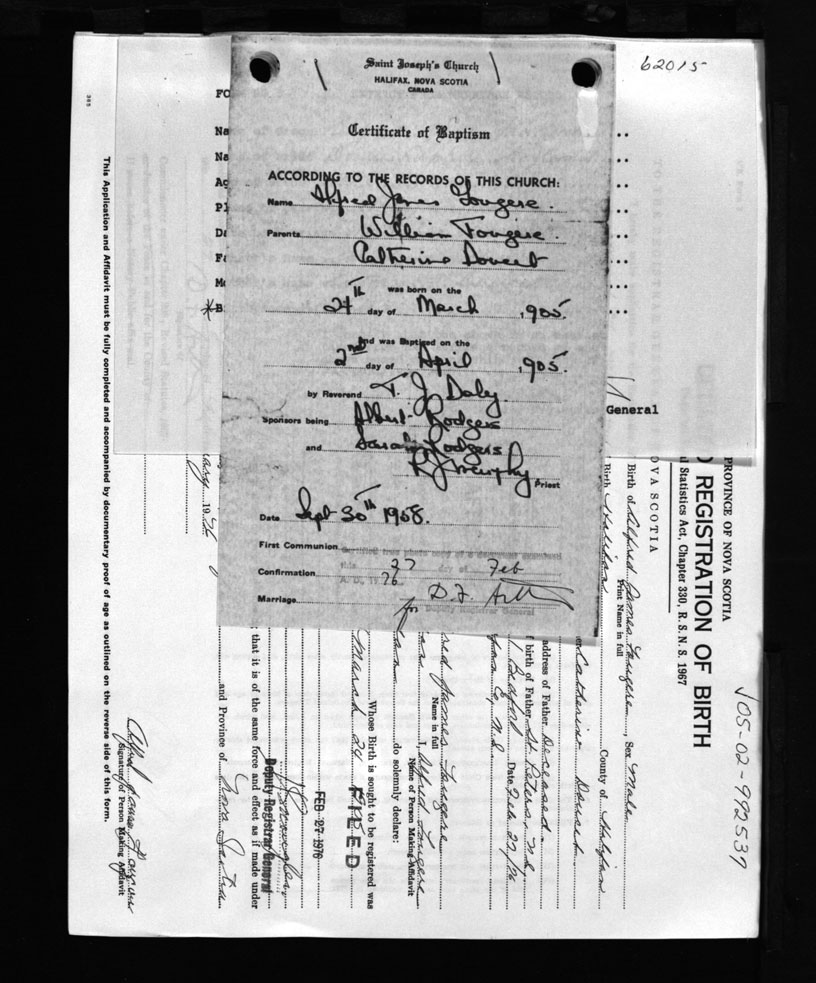 62015
Saint Joseph's Church
HALIFAX, NOVA SCOTIA
CANADA
Certificate of Baptism
ACCORDING TO THE RECORDS OF THIS CHURCH:
Name Alfred James Fougere.
Parents William Fougere.
Catherine Doucet
was born on the
24th day of March, 1905.
and was Baptised on the
2nd day of April, 1905.
by Reverend T. J. Daly.
Sponsors being Albert Rodgers
and Sarah Rodgers
R J Murphy Priest
Date Sept 30th 1958.
First Communion
Certified true photo copy of a document
this 27 day of Feb
A. D., 1976
Confirmation
Marriage
for D. F.
Deputy Registrar General
FO
Na
Na
Ag
Pl
Da
Fa
Mo
*B
General
365
This Application and Affidavit must be fully completed and accompanied by documentary proof of age as outlined on the reverse side of this form.
√05-02-992539
PROVINCE OF NOVA SCOTIA
D REGISTRATION OF BIRTH
l Statistics Act, Chapter 330, R. S. N. S. 1967
OVA SCOTIA
Birth of Alfred James Fougere, Sex Male
Print Name in full
Birth Halifax County of Halifax
er Catherine Doucet
address of Father Deceased
f birth of Father St. Peters, N.S.
Bedford Date Feb 27/76
Co, N.S.
red James Fougere
Name in full
I, Alfred Fougere
Name of Person Making Affidavit
do solemnly declare:
Whose Birth is sought to be registered was
March 24 1905
FILED
FEB 27 1976
Deputy Registrar General
; that it is of the same force and effect as if made under
and Province of Nova Scotia
19 76
Alfred James Fougere
Signature of Person Making Affidavit